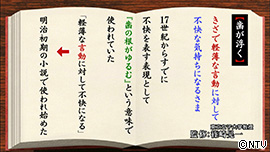 【歯が浮く】
きざで軽薄な言動に対して
不快な気持ちになるさま
17世紀からすでに
不快を表す表現として
「歯の根がゆるむ」という意味で
使われていた
「軽薄な言動に対して不快になる」
明治初期の小説で使われ始めた
監修:篠崎晃一
©NTV